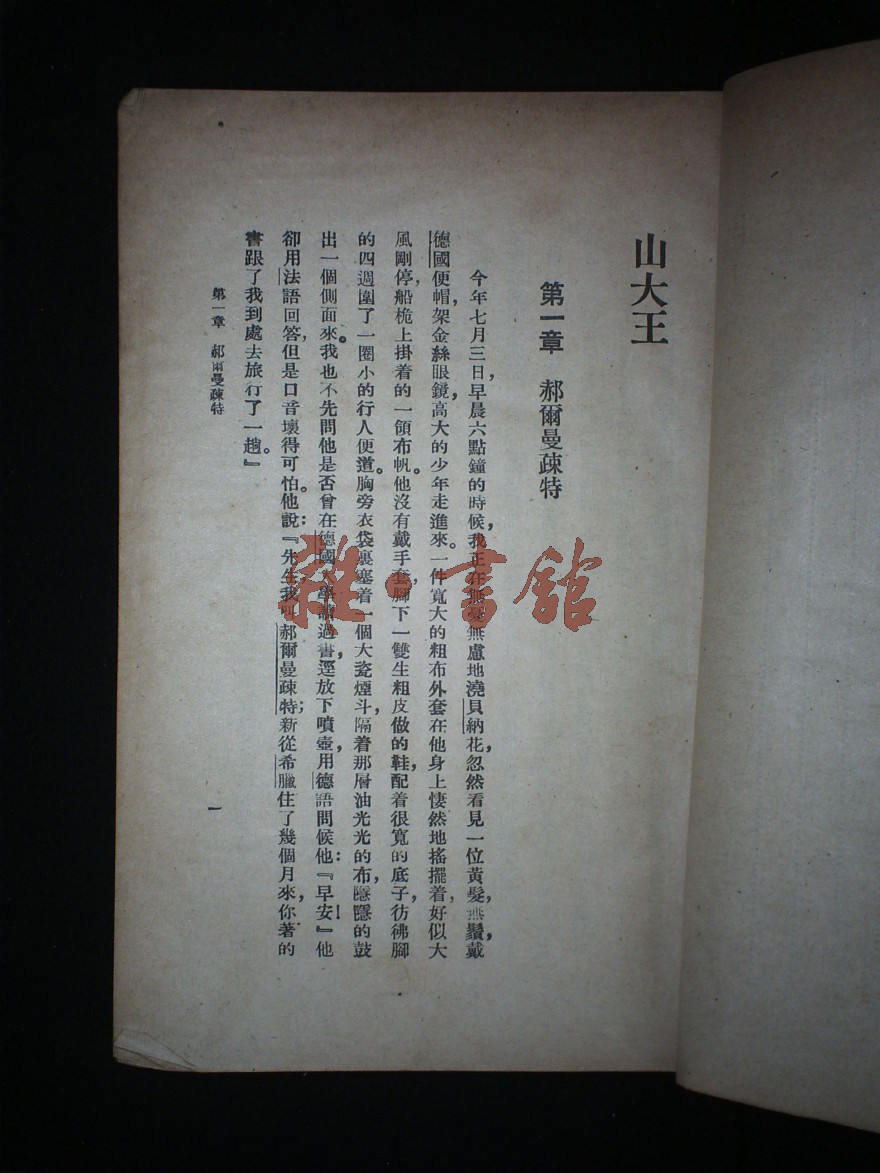 山大王
第一章 郝爾曼疎特
今年七月三日，早晨六點鐘的時候，我正在無憂無慮地澆貝納花，忽然看見一位黃髮，無鬚，戴
德國便帽，架金絲眼鏡，高大的少年走進來。一件寬大的粗布外套在他身上悽然地搖擺着，好似大
風剛停，船桅上掛着的一領布帆。他沒有戴手套，腳下一雙生粗皮做的鞋，配着很寬的底子，彷彿腳
的四週圍了一圈小的行人便道。胸旁衣袋裏塞着一個大瓷煙斗，隔着那層油光光的布，隱隱的鼓
出一個側面來。我也不先問他是否曾在德國大學讀過書，逕放下噴壺，用德語問候他：『早安！』他
卻用法語回答，但是口音壞得可怕。他說：『先生，我叫郝爾曼疎特；新從希臘住了幾個月來，你著的
書跟了我到處去旅行了一趟。』
第一章 郝爾曼疎特
一
雜·書館